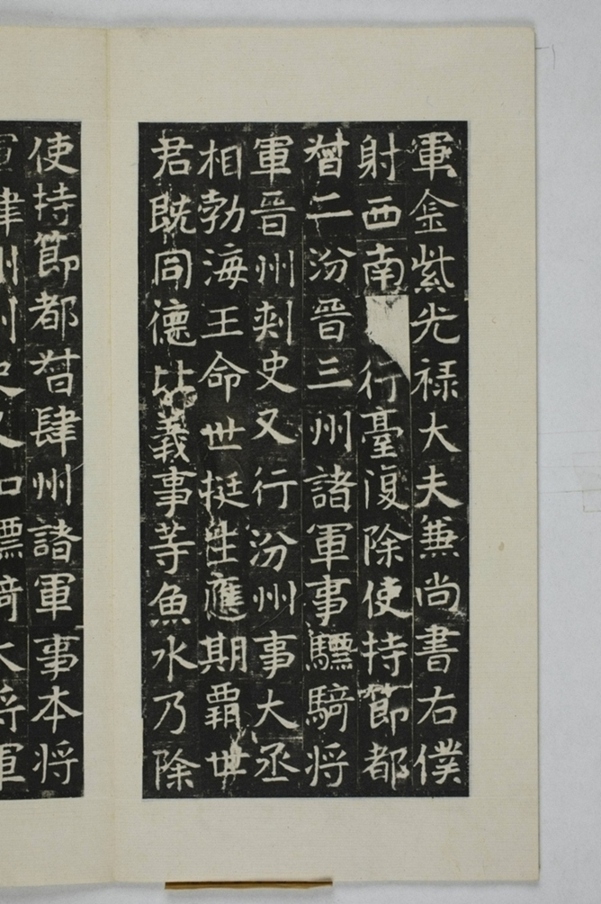 軍金紫光禄大夫兼尚書右僕
射西南行臺復除使持節都
督二汾晉三州諸軍事驃騎将
軍晉州刺史又行汾州事大丞
相勃海王命世挺生應期霸世
君既同德比義事等魚水乃除
使持節都督肆州諸軍事本将
軍肆州刺史又加驃騎大将軍